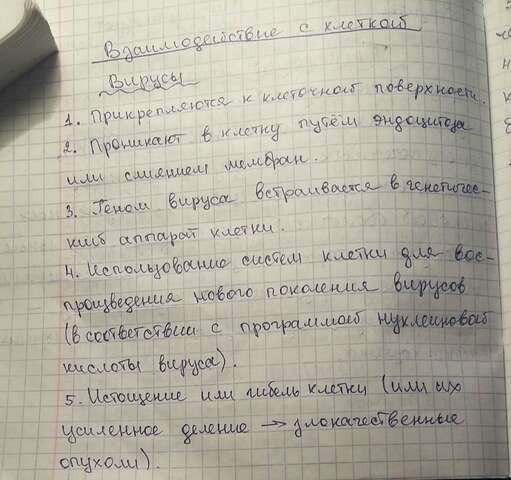 Взаимодействие с клеткой
Вирусы
1. Прикрепляются к клеточной поверхности.
2. Проникают в клетку путём эндоцитоза
или слиянием мембран.
3. Геном вируса встраивается в генетичес-
кий аппарат клетки.
4. Использование систем клетки для вос-
произведения нового поколения вирусов
(в соответствии с программой нуклеиновой
кислоты вируса).
5. Истощение или гибель клетки (или их
усиленное деление → злокачественные
опухоли).